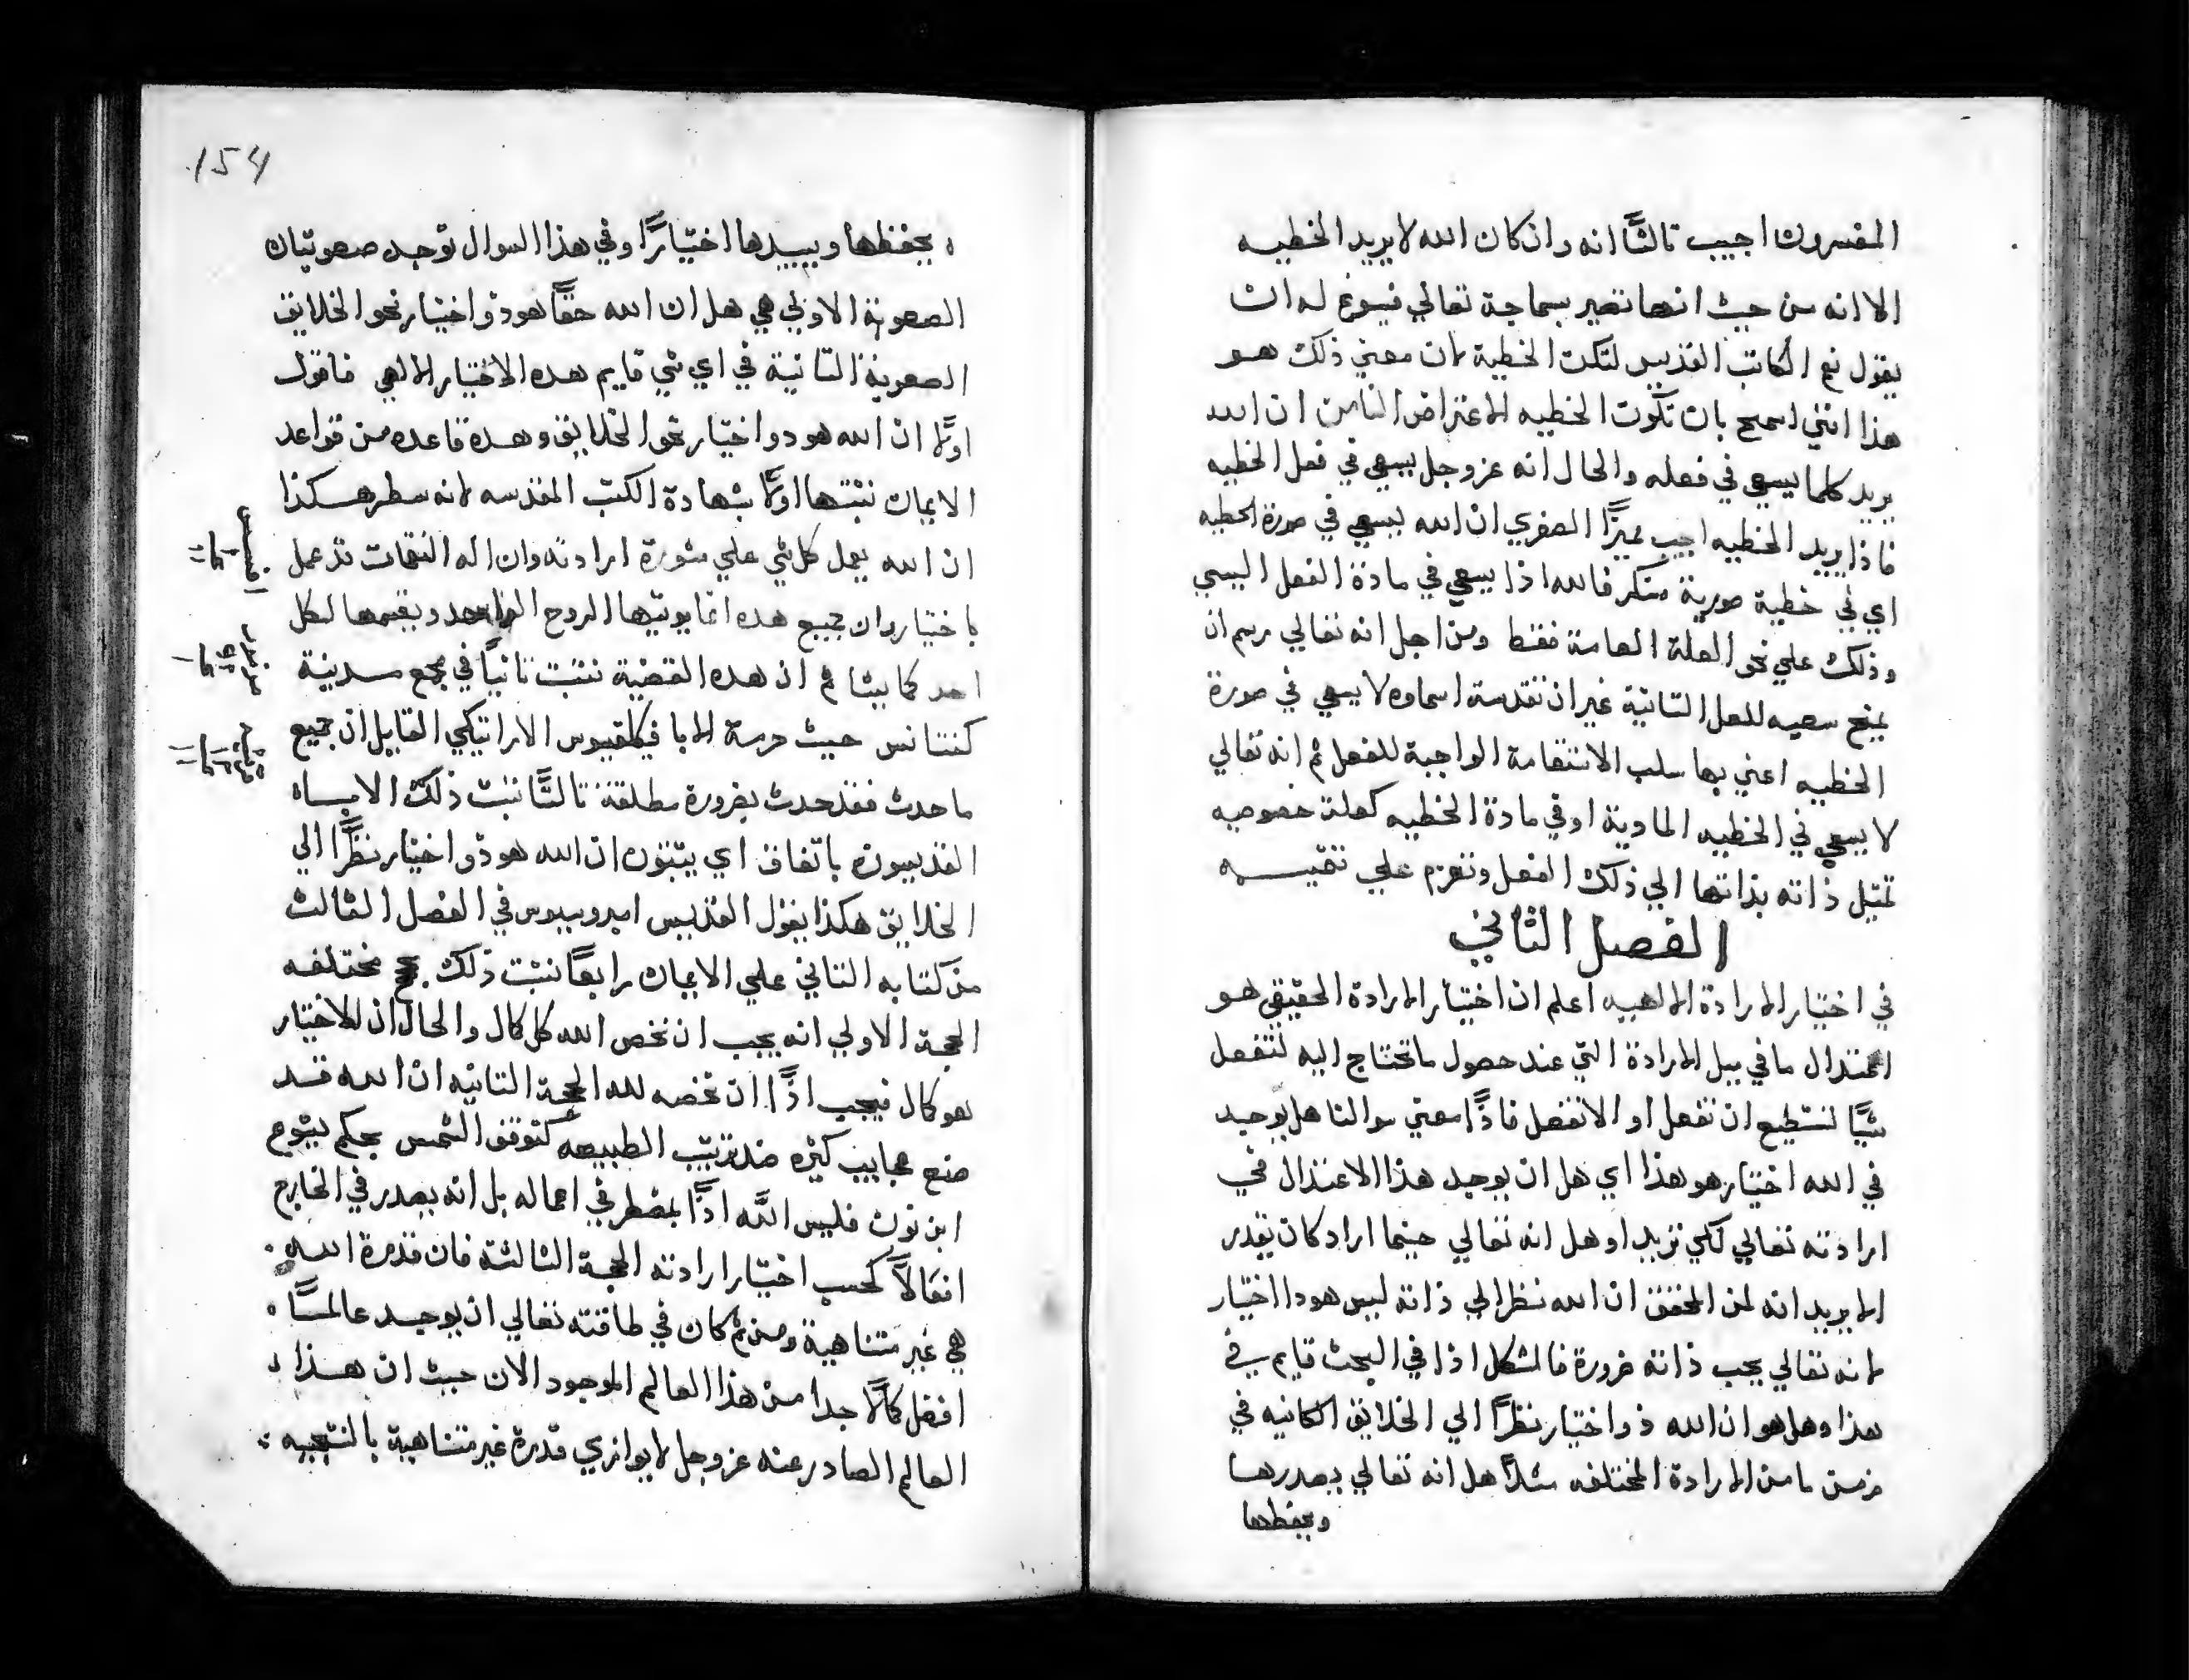 المفسرون اجيب ثالثًا انه وان كان الله لا يريد الخطيه
الا انه من حيث انها تصير بسماجة تعالي فيسوغ له ان
يقول نعم الكاتب القديس لتكن الخطية لان معني ذلك هو
هذا انني اسمح بان تكون الخطيه الاعتراض الثامن ان الله
يريد كلما يسعي في فعله والحال انه عز وجل يسعي في فعل الخطيه
فاذًا يريد الخطيه اجيب مميزًا الصغري ان الله يسعي في صورة الخطيه
اي في خطية صورية منكر فالله اذا يسعي في مادة الفعل السيي
وذلك علي نحو العلة العامة فقط ومن اجل انه تعالي رسم ان
يمنح سعيه للعلل الثانية غير ان تقدسة اسماوه لا يسعي في صورة
الخطيه اعني بها سلب الاستقامة الواجبة للفعل ثم انه تعالي
لا يسعي في الخطيه المادية او في مادة الخطيه كعلة خصوصيه
تميل ذاته بذاتها الي ذلك الفعل وتعزم علي تتميـــه
الفصل الثاني
في اختيار الارادة الالهيه اعلم ان اختيار الارادة الحقيقي هو
اعتدال ما في ميل الارادة التي عند حصول ما تحتاج اليه لتفعل
شيًا تستطيع ان تفعل او الا تفعل فاذًا معني سوالنا هل يوجد
في الله اختيار هو هذا اي هل ان يوجد هذا الاعتدال في
ارادته تعالي لكي تريد او هل انه تعالي حينما اراد كان يقدر
الا يريد انه لمن المحقق ان الله نظرا الي ذاته ليس هو ذا اختيار
لانه تعالي يحب ذاته ضرورة فالمشكل اذا في البحث قايم في
هذا وهل هو ان الله ذو اختيار نظرًا الي الخلايق الكاينه في
زمن ما من الارادة المختلفه مثلًا هل انه تعالي يصدرها
ويحفظها
154
يحفظها ويبيدها اختيارًا وفي هذا السوال توجد صعوبتان
الصعوبة الاولي هي هل ان الله حقًا هو ذو اختيار نحو الخلايق
الصعوبة الثانية في اي شي قايم هذه الاختيار الالهي فاقول
اولًا ان الله هو ذو اختيار نحو الخلايق وهذه قاعده من قواعد
الايمان نثبتها اولًا بشهادة الكتب المقدسه لانه سطر هكذا
ان الله يعمل كل شي علي مشورة ارادته وان اله النقمات قد عمل
باختيار وان جميع هذه انما يوتيها الروح الواحد ويقسمها لكل
احد كما يشا ثم ان هذه القضية نثبت ثانيًا في مجمع مدينة
كنستانس حيث حرمة البابا فيكلفيوس الاراتيكي القايل ان جميع
ما حدث فقد حدث بضرورة مطلقة ثالثًا نثبت ذلك الاباء
القديسون باتفاق اي يثبتون ان الله هو ذو اختيار نظرًا الي
الخلايق هكذا يقول القديس امبروسيوس في الفصل الثالث
من كتابه الثاني علي الايمان رابعًا نثبت ذلك بحجج مختلفه
الحجة الاولي انه يجب ان نخص الله كل كمال والحال ان الاختيار
هو كمال فيجب اذًا ان نخصه لله الحجة الثانيه ان الله قد
صنع عجايب كثيره ضد ترتيب الطبيعه كتوقف الشمس بحكم يشوع
ابن نون فليس الله اذًا بمضطر في اعماله بل انه يصدر في الخارج
افعالًا كحسب اختيار ارادته الحجة الثالثة فان قدرة الله
هي غير متناهية ومن ثم كان في طاقته تعالي ان يوجد عالمًا
افضل كمالًا جدا من هذا العالم الموجود الان حيث ان هذا
العالم الصادر عنه عز وجل لا يوازي قدرة غير متناهية بالنتيجه